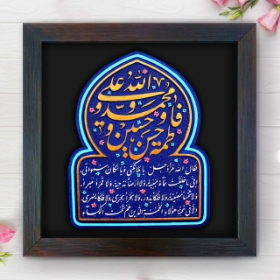 الله و محمد و علی
و فاطمة و حسن و حسین
فقال الله عز و جل یا ملائکتی و یا سکان سمواتی
انی ما خلقت سماء مبنیة و لا ارضا مدحیة و لا قمرا منیرا
و لا شمسا مضیئة و لا فلکا یدور و لا بحرا یجری و لا فلکا یسری
الا فی محبة هؤلاء الخمسة الذین هم تحت الکساء